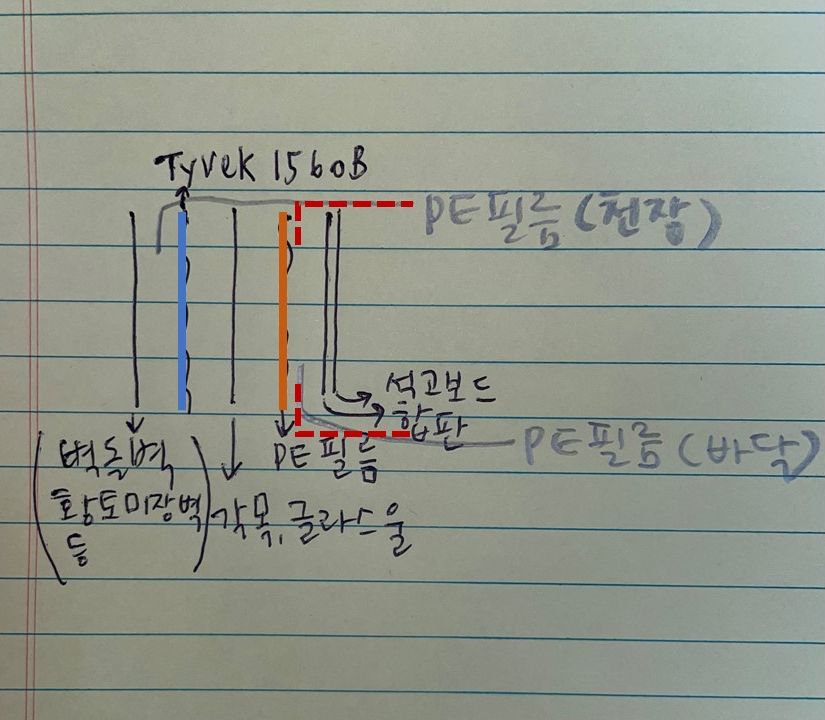 Tyvek 1560B
PE 필름 (천장)
석고보드
합판
PE 필름 (바닥)
PE 필름
(벽돌벽
황토미장벽
등)
각목, 글라스울